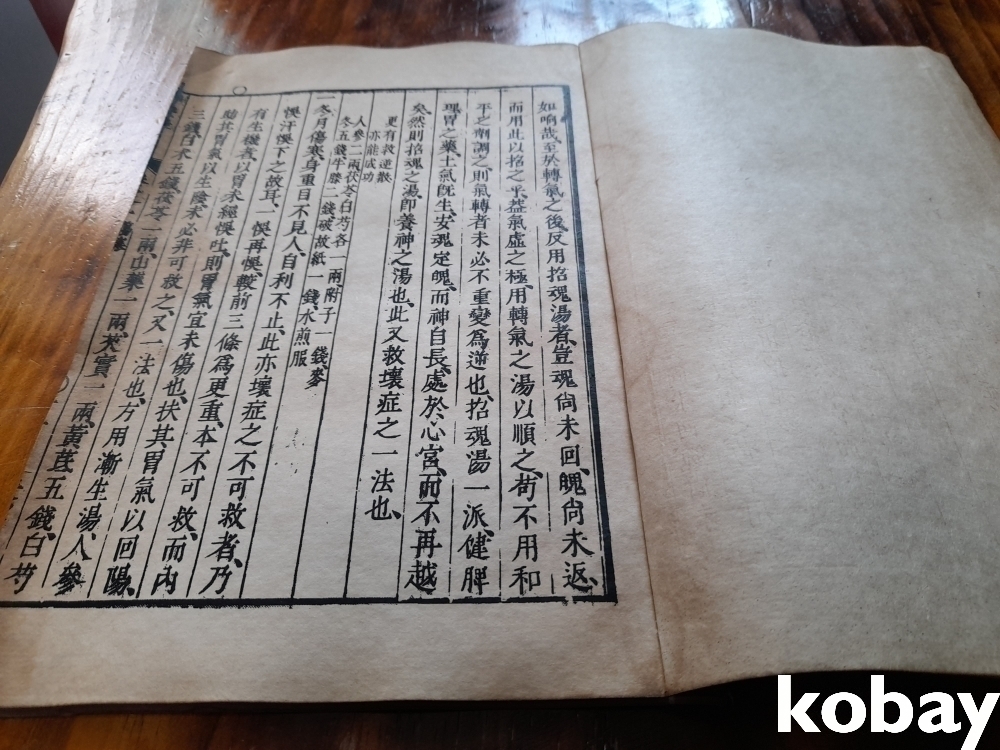 如响哉、至於轉氣之後、反用招魂湯者、豈魂尙未回、魄尙未返、
而用此以招之乎、葢氣虛之極、用轉氣之湯以順之、茍不用和
平之劑調之、則氣轉者未必不重變爲逆也、招魂湯一派健脾
理胃之藥、土氣旣生、安魂定魄、而神自長處於心宮、而不再越
矣、然則招魂之湯、卽養神之湯也、此又救壞症之一法也、
更有救逆散
亦能成功
人參二兩茯苓白芍各一兩附子一錢麥
冬五錢牛膝二錢破故紙一錢、水煎服
一冬月傷寒、身重目不見人、自利不止、此亦壞症之不可救者、乃
悞汗悞下之故耳、一悞再悞、較前三條爲更重、本不可救、而內
有生機者、以胃未經悞吐、則胃氣宜未傷也、扶其胃氣以回陽、
助其胃氣以生陰、未必非可救之又一法也、方用漸生湯、人參
三錢、白朮五錢、茯苓一兩、山藥一兩、芡實一兩、黃芪五錢、白芍
kobay